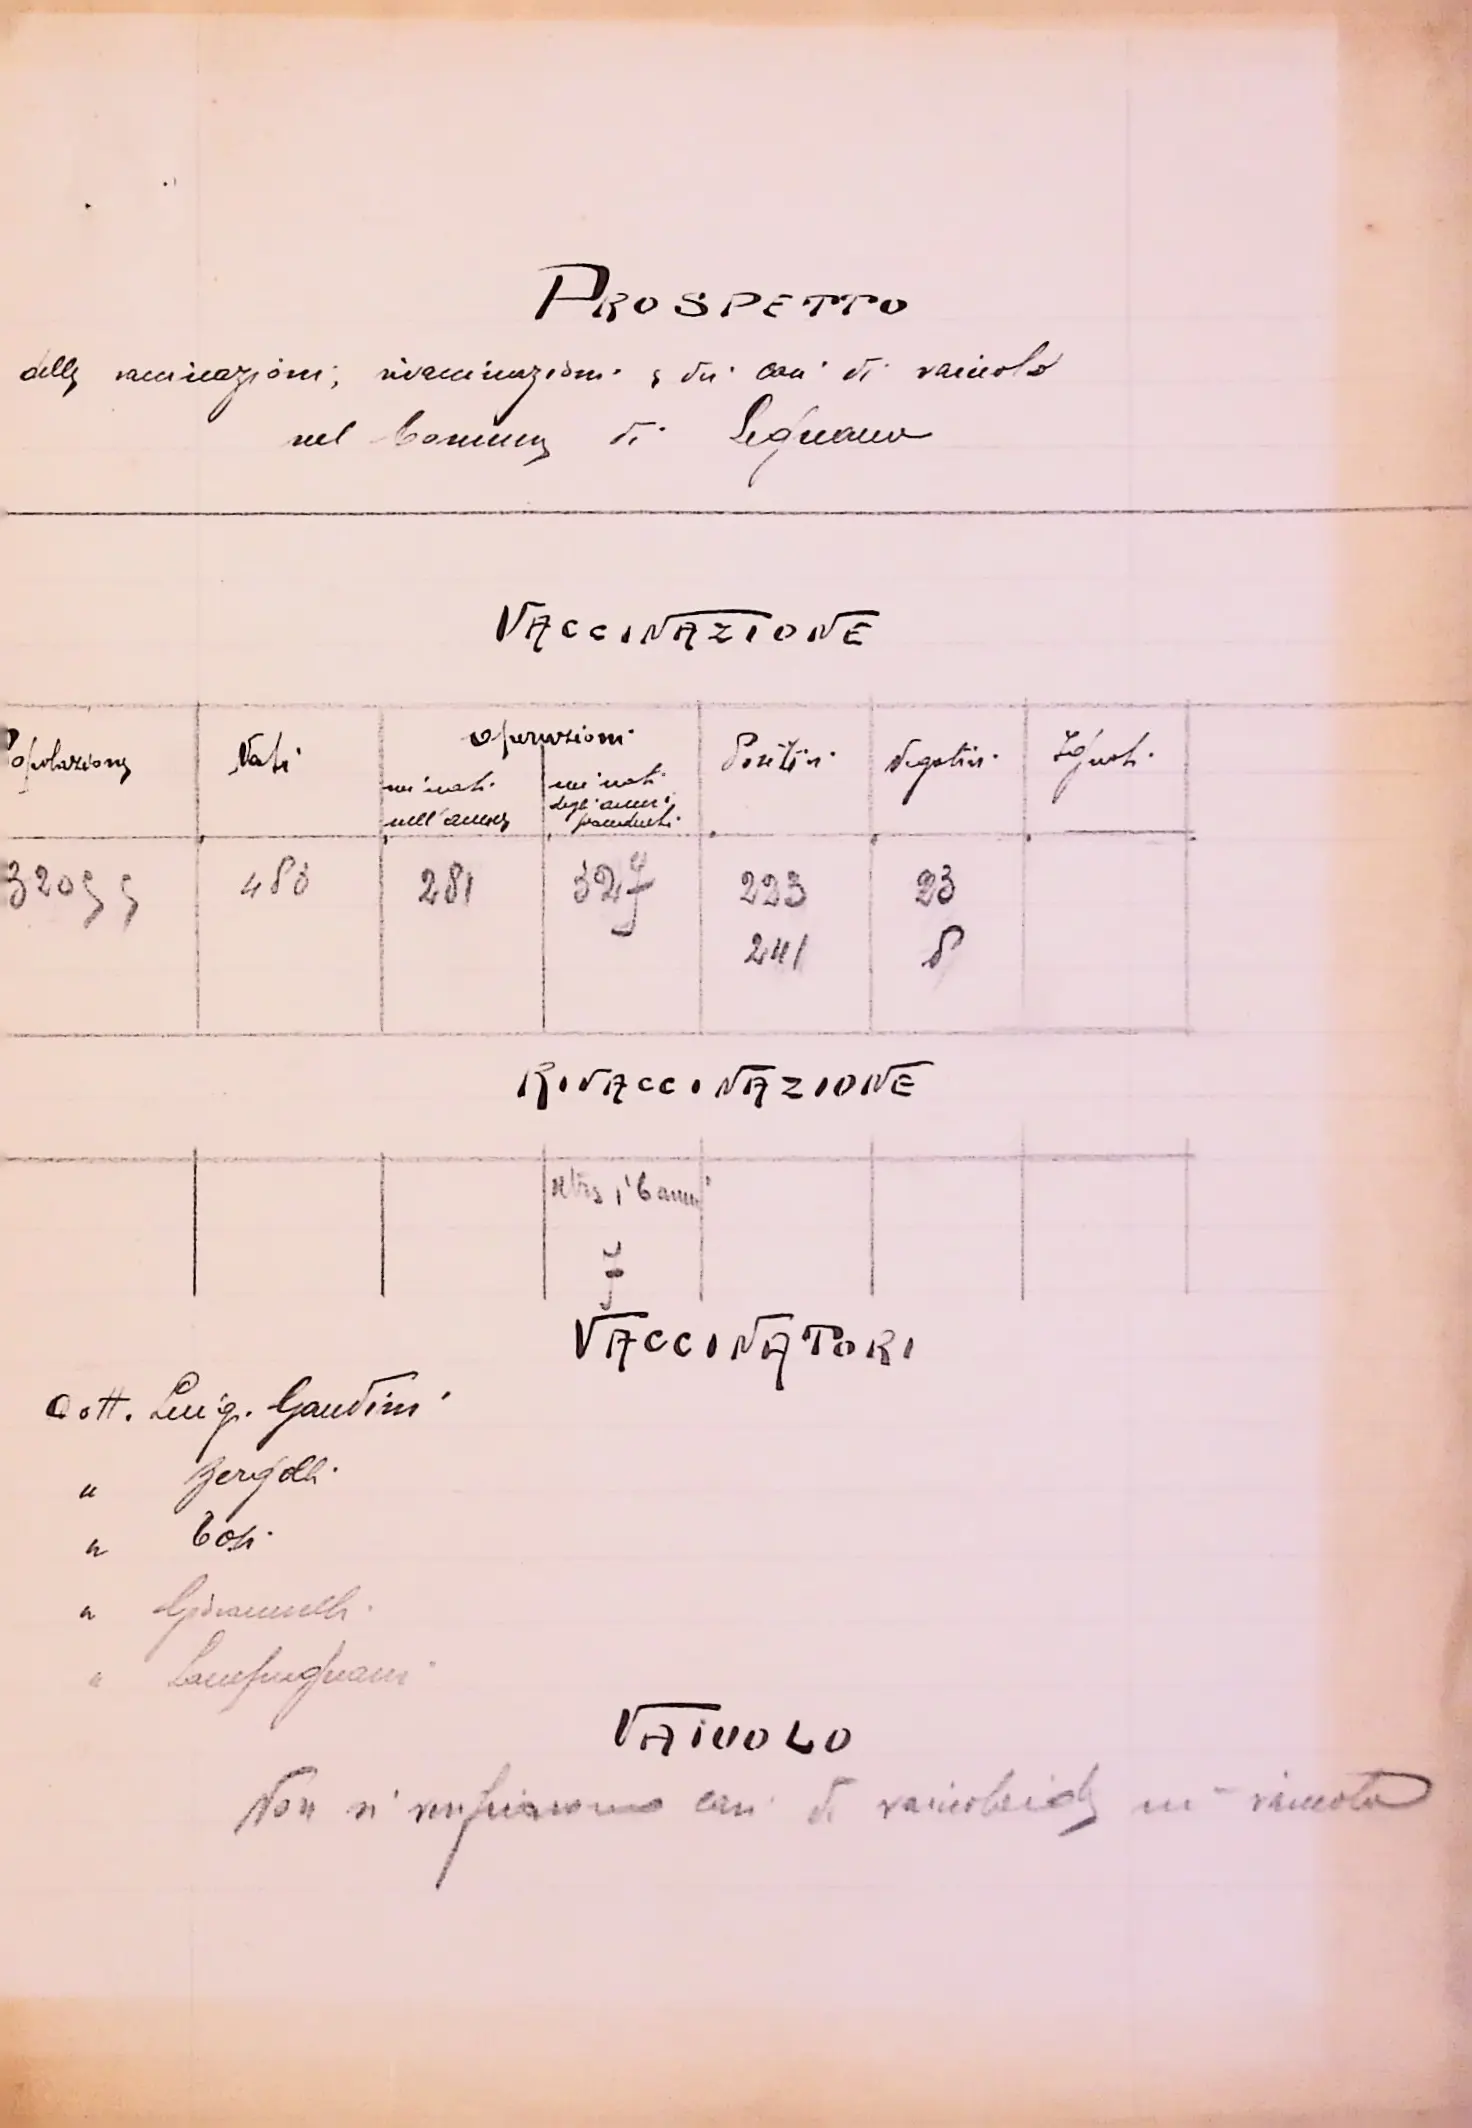 PROSPETTO
delle vaccinazioni, rivaccinazioni e dei casi di vaiuolo
nel Comune di Legnano
VACCINAZIONE
Popolazione Nati operazioni Positivi Negativi Ignoti
nei nati nell'anno nei nati degli anni precedenti
32055 480 281 327 223 23
241 8
RIVACCINAZIONE
oltre i 6 anni
7
VACCINATORI
Dott. Luigi Gandini
" Bergolli
" Tosi
" Giovannelli
" Lampugnani
VAIUOLO
Non si verificarono casi di vaiuoloide nè vaiuolo